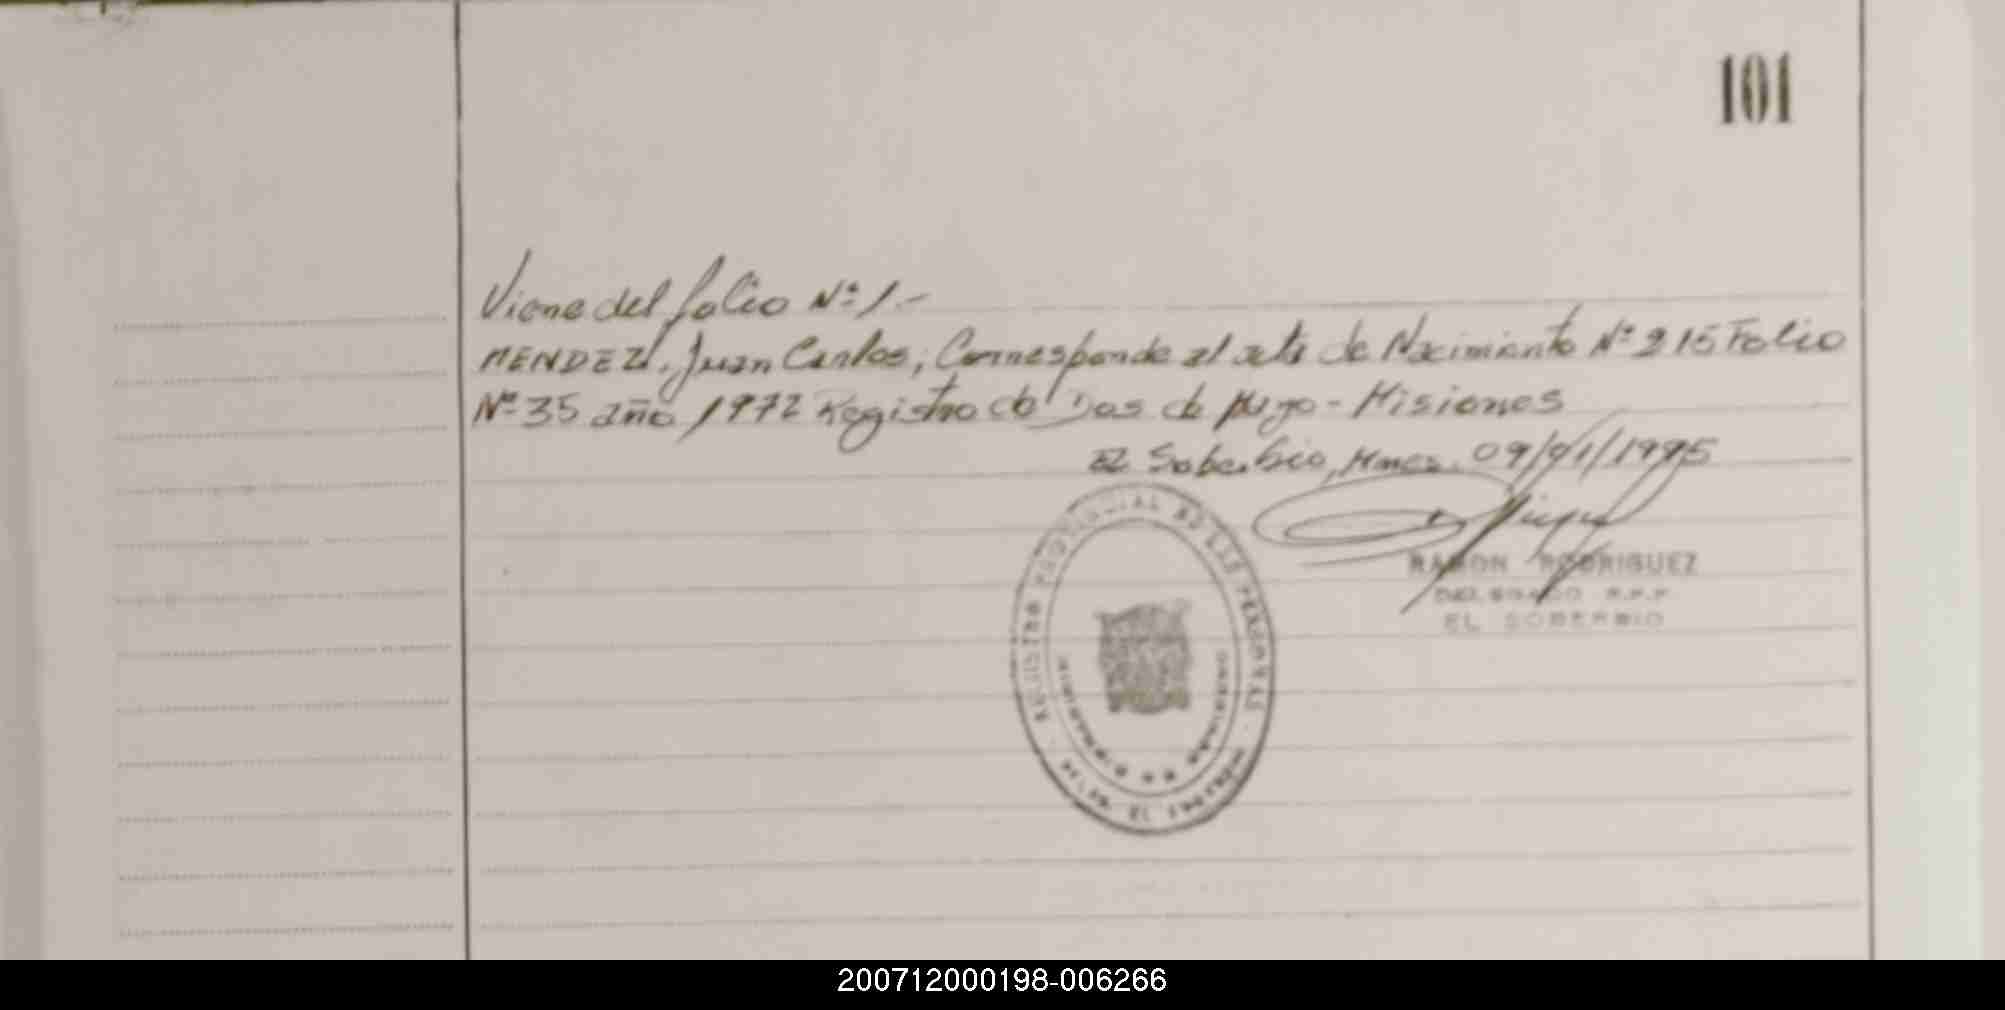 101
Viene del folio Nº 1.-
MENDEZ, Juan Carlos, Corresponde al acta de Nacimiento Nº 215 Folio
Nº 35 año 1972 Registro de Dos de Mayo - Misiones
El Soberbio, Mnes. 09/01/1995
RAMON RODRIGUEZ
DELEGADO R.P.P
EL SOBERBIO
REGISTRO PROVINCIAL DE LAS PERSONAS
MINISTERIO DE GOBIERNO
EL SOBERBIO
200712000198-006266